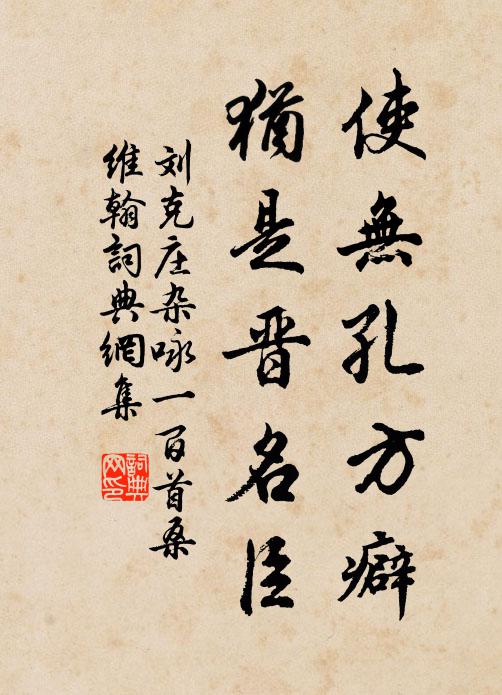 使無孔方癖
猶是晋名臣
刘克庄杂咏一百首桑
维翰詞典網集
詞典
网印